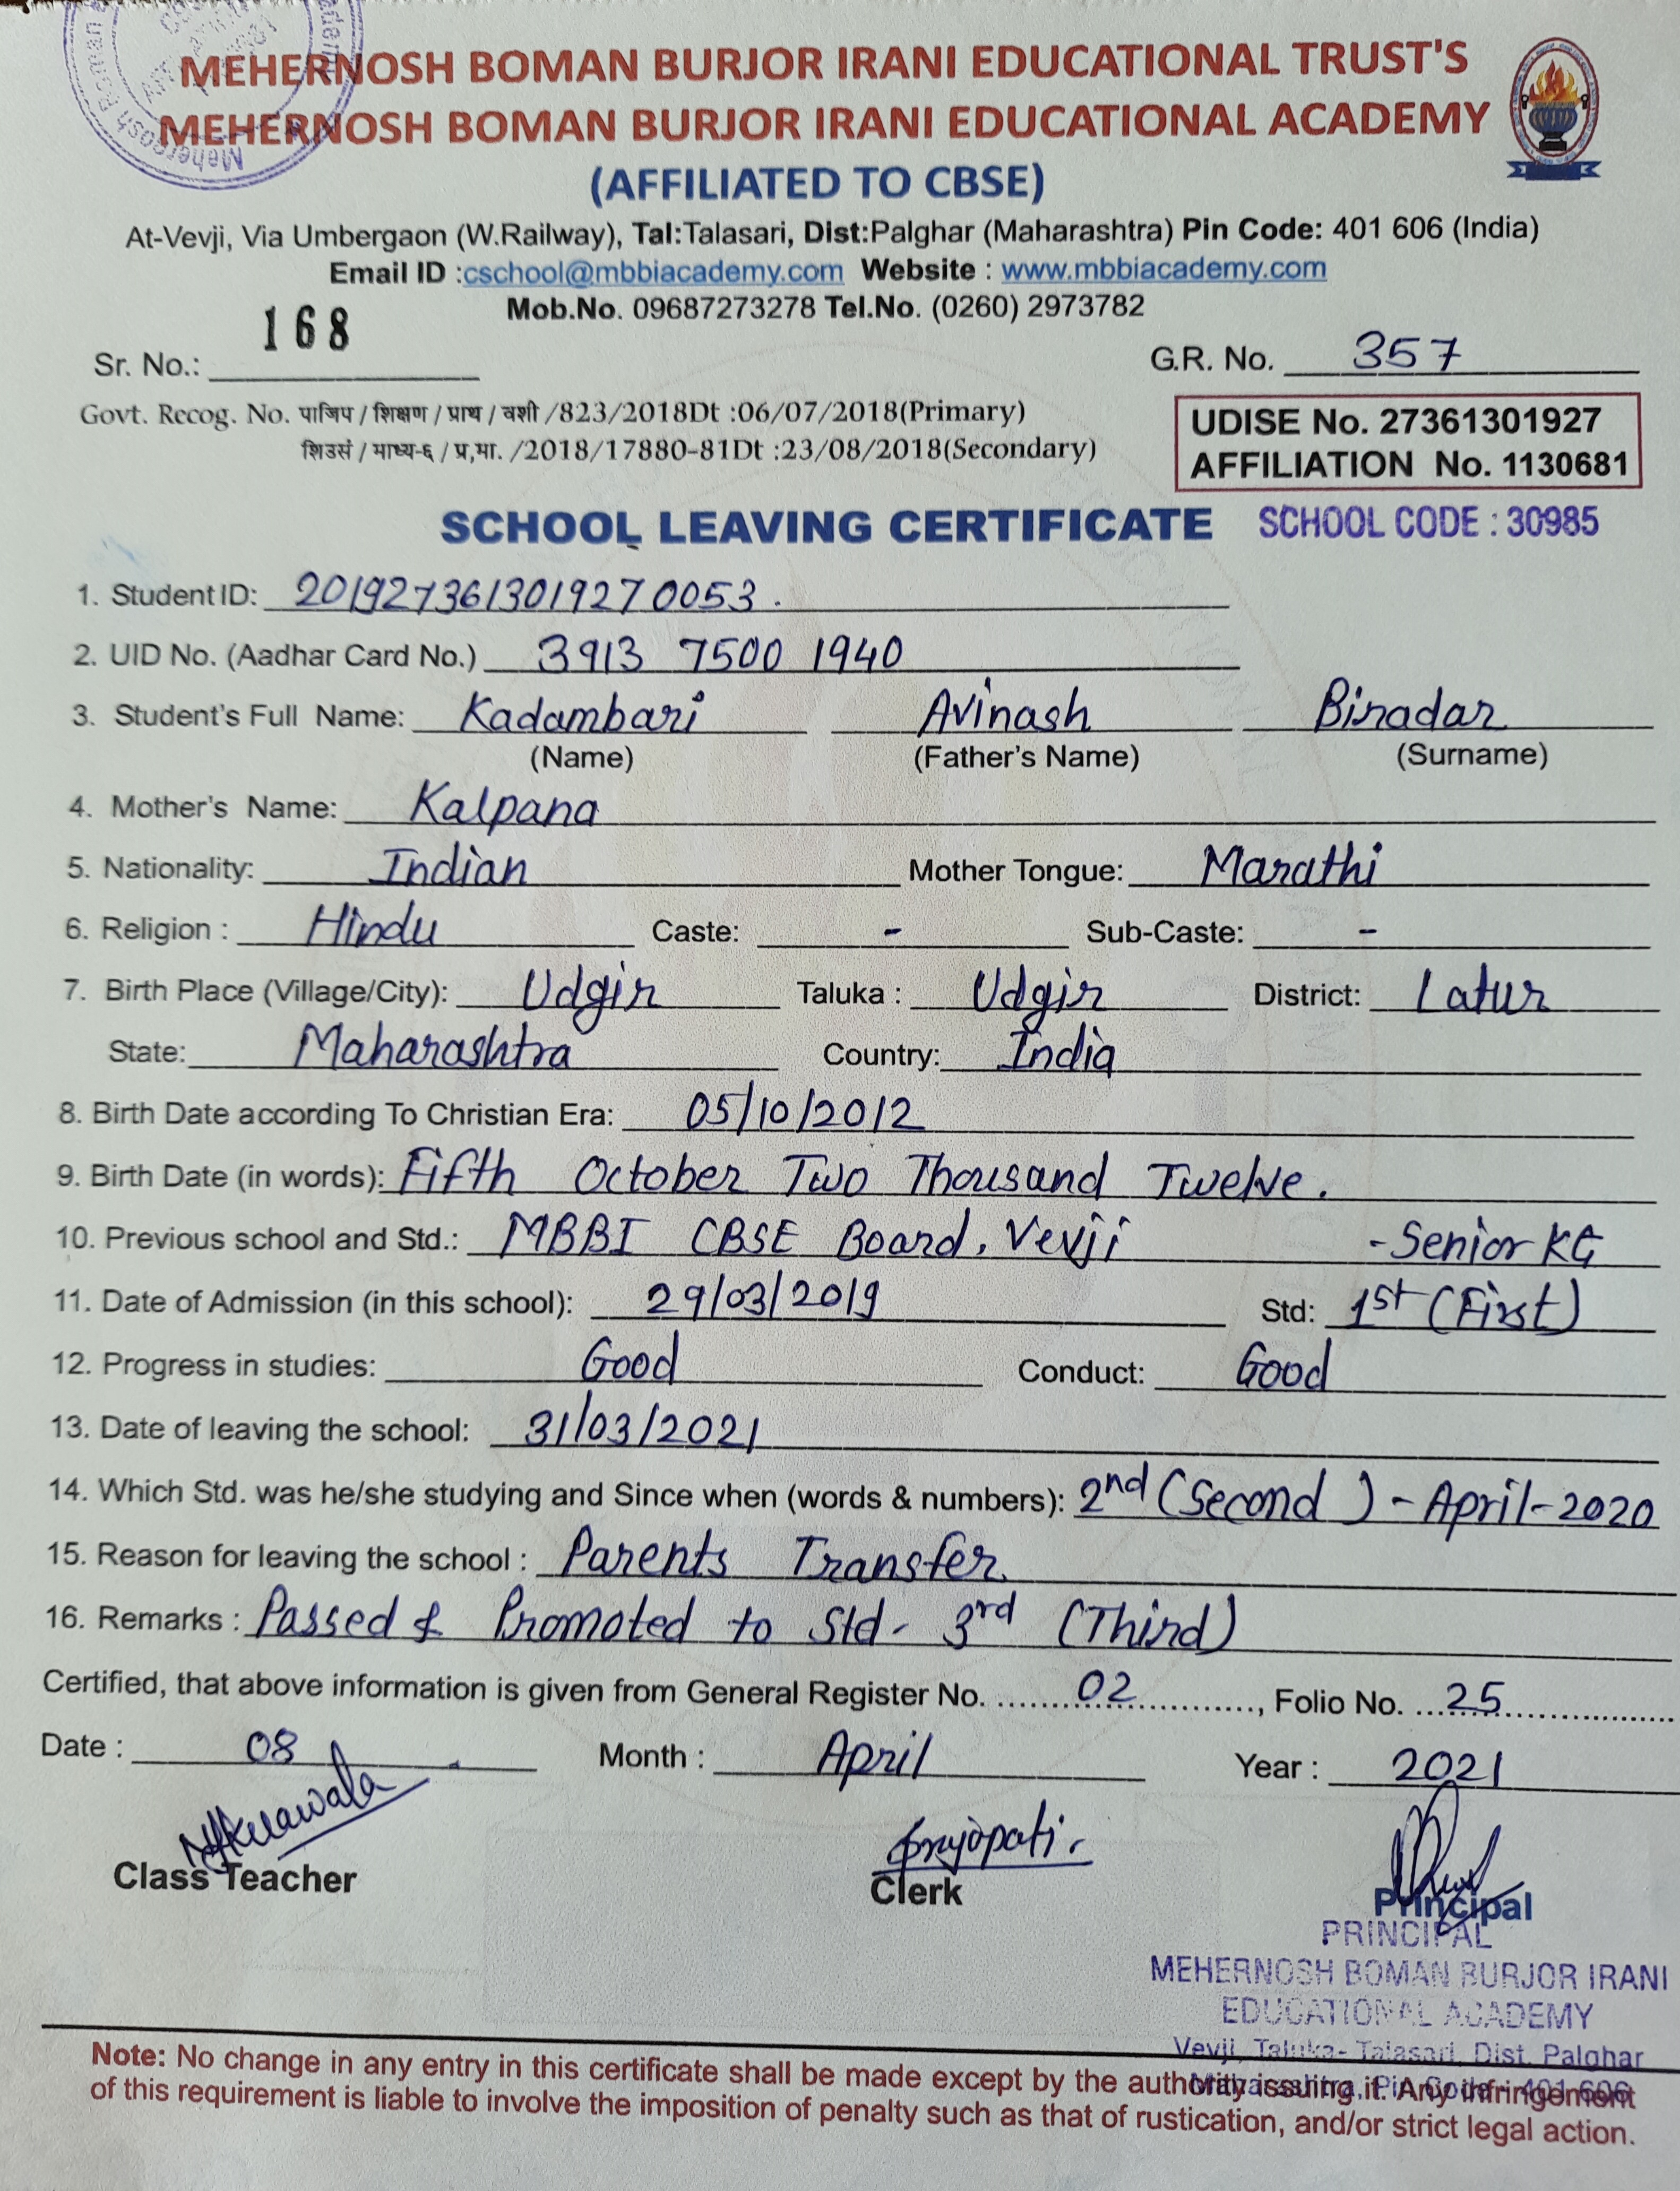 MEHERNOSH BOMAN BURJOR IRANI EDUCATIONAL TRUST'S
MEHERNOSH BOMAN BURJOR IRANI EDUCATIONAL ACADEMY
(AFFILIATED TO CBSE)
At-Vevji, Via Umbergaon (W.Railway), Tal:Talasari, Dist:Palghar (Maharashtra) Pin Code: 401 606 (India)
Email ID :cschool@mbbiacademy.com Website : www.mbbiacademy.com
Mob.No. 09687273278 Tel.No. (0260) 2973782
Sr. No.: 168 G.R. No. 357
Govt. Recog. No. पाजिप / शिक्षण / प्राथ / वशी /823/2018Dt :06/07/2018(Primary)
शिउसं / माध्य-६ / प्र,मा. /2018/17880-81Dt :23/08/2018(Secondary)
UDISE No. 27361301927
AFFILIATION No. 1130681
SCHOOL LEAVING CERTIFICATE SCHOOL CODE : 30985
1. Student ID: 2019273613019270053.
2. UID No. (Aadhar Card No.) 3913 7500 1940
3. Student's Full Name: Kadambari Avinash Biradar
(Name) (Father's Name) (Surname)
4. Mother's Name: Kalpana
5. Nationality: Indian Mother Tongue: Marathi
6. Religion : Hindu Caste: - Sub-Caste: -
7. Birth Place (Village/City): Udgir Taluka : Udgir District: Latur
State: Maharashtra Country: India
8. Birth Date according To Christian Era: 05/10/2012
9. Birth Date (in words): Fifth October Two Thousand Twelve.
10. Previous school and Std.: MBBI CBSE Board, Vevji - Senior KG
11. Date of Admission (in this school): 29/03/2019 Std: 1st (First)
12. Progress in studies: Good Conduct: Good
13. Date of leaving the school: 31/03/2021
14. Which Std. was he/she studying and Since when (words & numbers): 2nd (Second) - April-2020
15. Reason for leaving the school : Parents Transfer.
16. Remarks : Passed & Promoted to Std- 3rd (Third)
Certified, that above information is given from General Register No. 02, Folio No. 25
Date : 08 Month : April Year : 2021
Prajapati.
Class Teacher Clerk Principal
PRINCIPAL
MEHERNOSH BOMAN BURJOR IRANI
EDUCATIONAL ACADEMY
Vevji, Taluka- Talasari, Dist. Palghar
Maharashtra, Pin Code - 401 606
Note: No change in any entry in this certificate shall be made except by the authority issuing it. Any infringement
of this requirement is liable to involve the imposition of penalty such as that of rustication, and/or strict legal action.